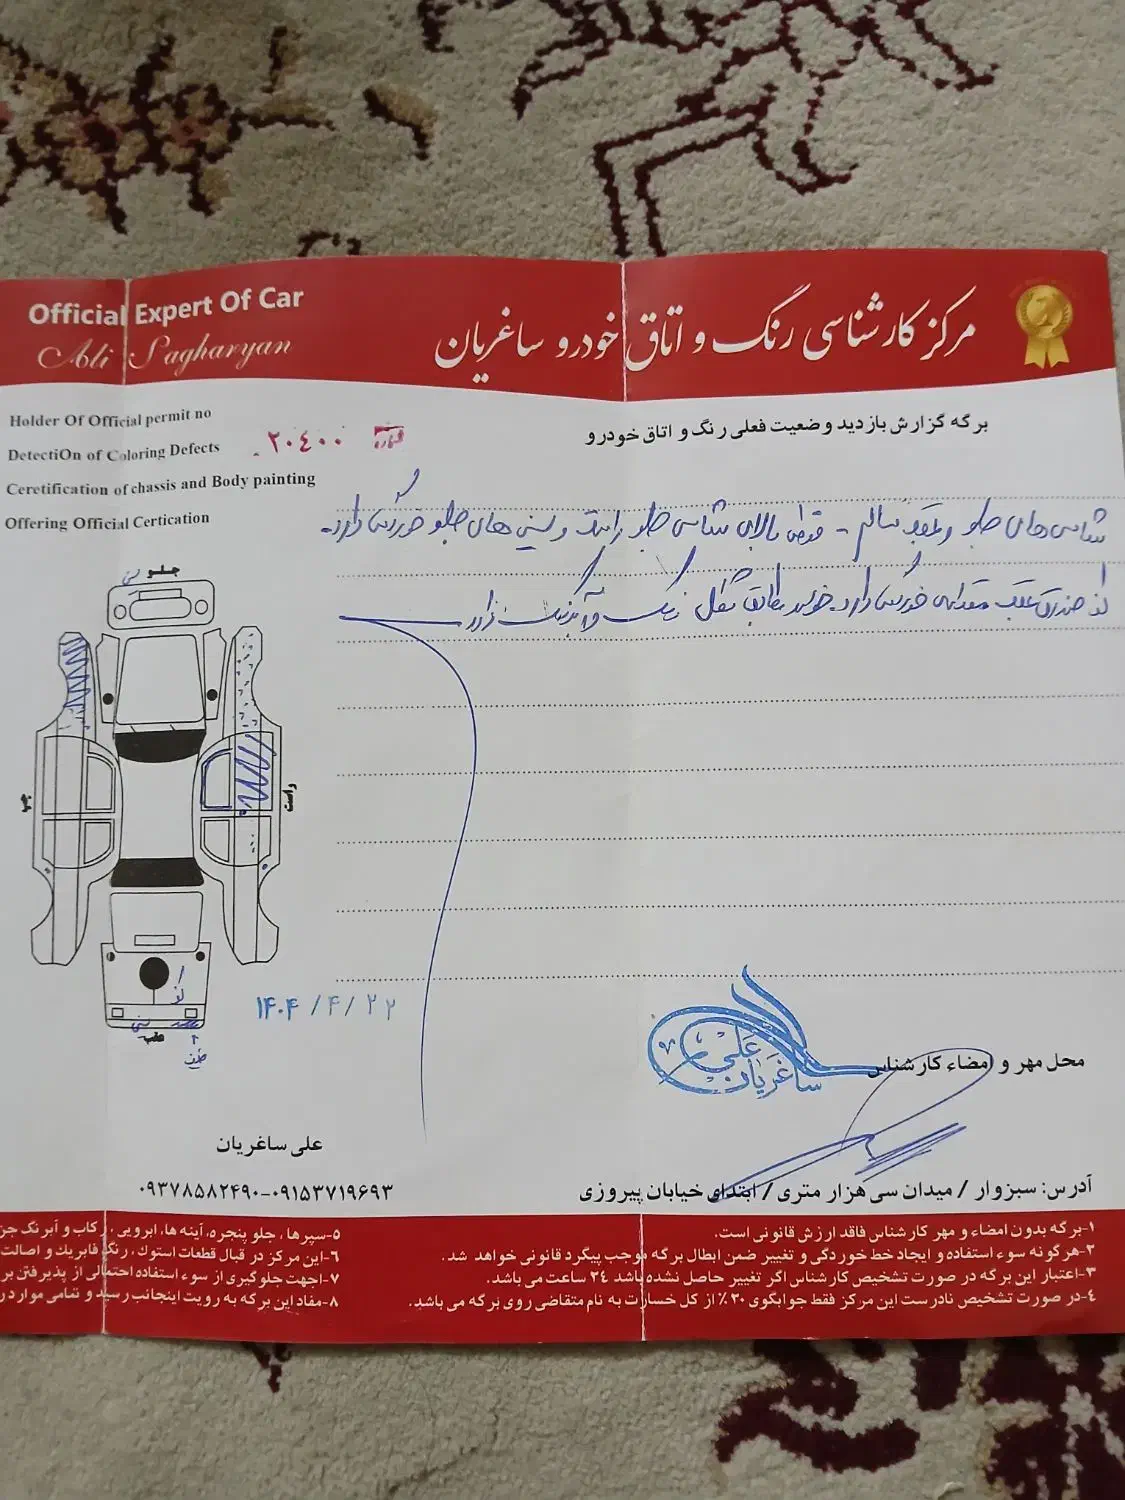 Official Expert Of Car
Ali Sagharyan
مرکز کارشناسی رنگ و اتاق خودرو ساغریان
Holder Of Official permit no
DetectiOn of Coloring Defects
Ceretification of chassis and Body painting
Offering Official Certication
شماره
۲۰۴۰۰
برگه گزارش بازدید وضعیت فعلی رنگ و اتاق خودرو
شاسی های جلو و عقب سالم - فقط بالای شاسی جلو راست و سینی های جلو خوردگی دارد.
صندوق عقب مقداری خوردگی دارد. خودرو مطابق شکل رنگ و آبرنگ دارد
جلو
چپ
راست
عقب
۱۴۰۴/۴/۲۲
محل مهر و امضاء کارشناس
علی ساغریان
علی ساغریان
۰۹۳۷۸۵۸۲۴۹۰-۰۹۱۵۳۷۱۹۶۹۳
آدرس: سبزوار / میدان سی هزار متری / ابتدای خیابان پیروزی
۱-برگه بدون امضاء و مهر کارشناس فاقد ارزش قانونی است.
۲-هرگونه سوء استفاده و ایجاد خط خوردگی و تغییر ضمن ابطال برگه موجب پیگرد قانونی خواهد شد.
۳-اعتبار این برگه در صورت تشخیص کارشناس اگر تغییر حاصل نشده باشد ۲۴ ساعت می باشد.
۴-در صورت تشخیص نادرست این مرکز فقط جوابگوی ۲۰٪ از کل خسارت به نام متقاضی روی برگه می باشد.
۵-سپرها، جلو پنجره، آینه ها، ابرویی، رکاب و آبرنگ جز
۶-این مرکز در قبال قطعات استوک، رنگ فابریک و اصالت
۷-اجهت جلوگیری از سوء استفاده احتمالی از پذیرفتن بر
۸-مفاد این برگه به رویت اینجانب رسید و تمامی موارد در